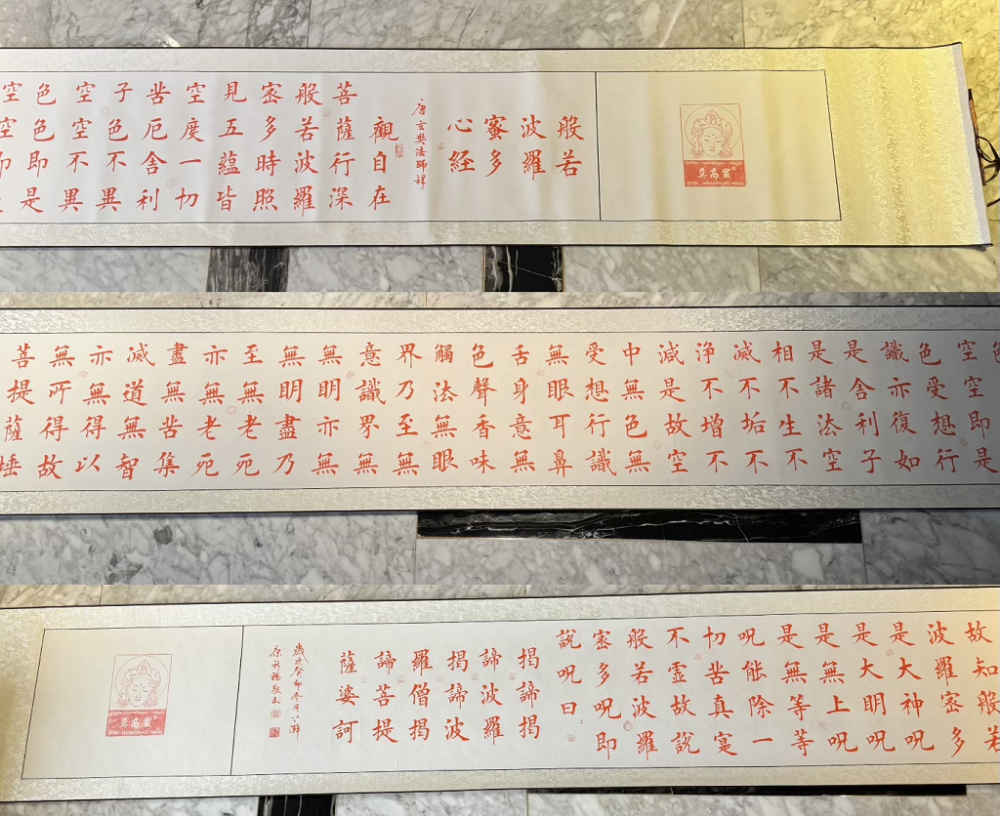 莫高窟
般若
波羅
蜜多
心経
唐玄奘法師譯
觀自在
菩薩行深
般若波羅
密多時照
見五蘊皆
空度一切
苦厄舍利
子色不異
空空不異
色色即是
空空即
空空即是
色受想行
識亦復如
是舍利子
是諸法空
相不生不
滅不垢不
淨不增不
減是故空
中無色無
受想行識
無眼耳鼻
舌身意無
色聲香味
觸法無眼
界乃至無
意識界無
無明亦無
無明盡乃
至無老死
亦無老死
盡無苦集
滅道無智
亦無得以
無所得故
菩提薩埵
故知般若
波羅密多
是大神呪
是大明呪
是無上呪
是無等等
呪能除一
切苦真寔
不虛故說
般若波羅
密多呪即
說呪曰
揭諦揭
諦波羅
揭諦波
羅僧揭
諦菩提
薩婆訶
歲次癸卯冬月
莫高窟